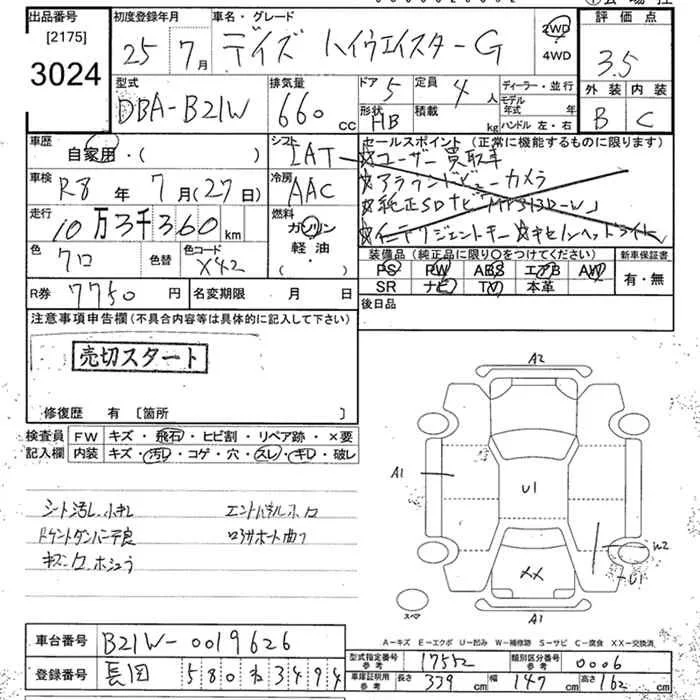 出品番号 初度登録年月 車名・グレード 評価点
[2175]
3024 25年 7月 デイズ ハイウエイスターG 2WD・4WD 3.5
型式 排気量 ドア 5 定員 4人 ディーラー・並行 外装 内装
DBA-B21W 660cc 形状 HB 積載 kg モデル年式 年 ハンドル 左・右 B C
車歴 自家用・( ) シフト IAT セールスポイント(正常に機能するものに限ります)
☆ユーザー買取車
車検 R8年 7月(27日) 冷房 AAC ☆アラウンドビューカメラ
走行 10万3千360km 燃料 ガソリン・軽油・( ) ☆純正SDナビ「MP313D-W」
☆インテリジェントキー ☆キセノンヘッドライト
色 クロ 色替 色コード X42 装備品(純正品に限り○をつけてください) 新車保証書
PS PW ABS エアB AW 有・無
R券 7750円 名変期限 月 日 SR ナビ TV 本革
注意事項申告欄(不具合内容等は具体的に記入して下さい) 後日品
売切スタート
修復歴 有 [箇所 ]
検査員 FW キズ・飛石・ヒビ割・リペア跡・×要
記入欄 内装 キズ・汚レ・コゲ・穴・スレ・キレ・破レ
A2
A1 U1
シート汚し、小キレ
W2
U1
XX
スペ
A1
A-キズ E-エクボ U-凹み W-補修跡 S-サビ C-腐食 XX-交換済
車台番号 B21W-0019626 型式指定番号 参考 17552 類別区分番号 参考 0006
登録番号 長岡 580 ね 3494 車庫証明用 参考 長さ 339cm 幅 147cm 高さ 162cm